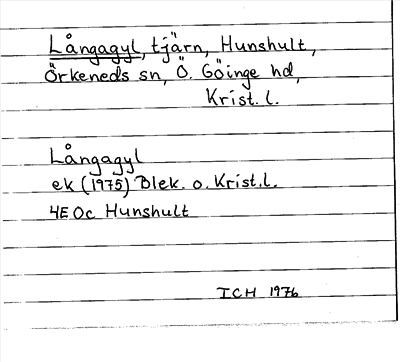 Långagyl, tjärn, Hunshult,
Örkeneds sn, Ö. Göinge hd,
Krist. l.
Långagyl
ek (1975) Blek. o. Krist. l.
4E 0c Hunshult
ICH 1976